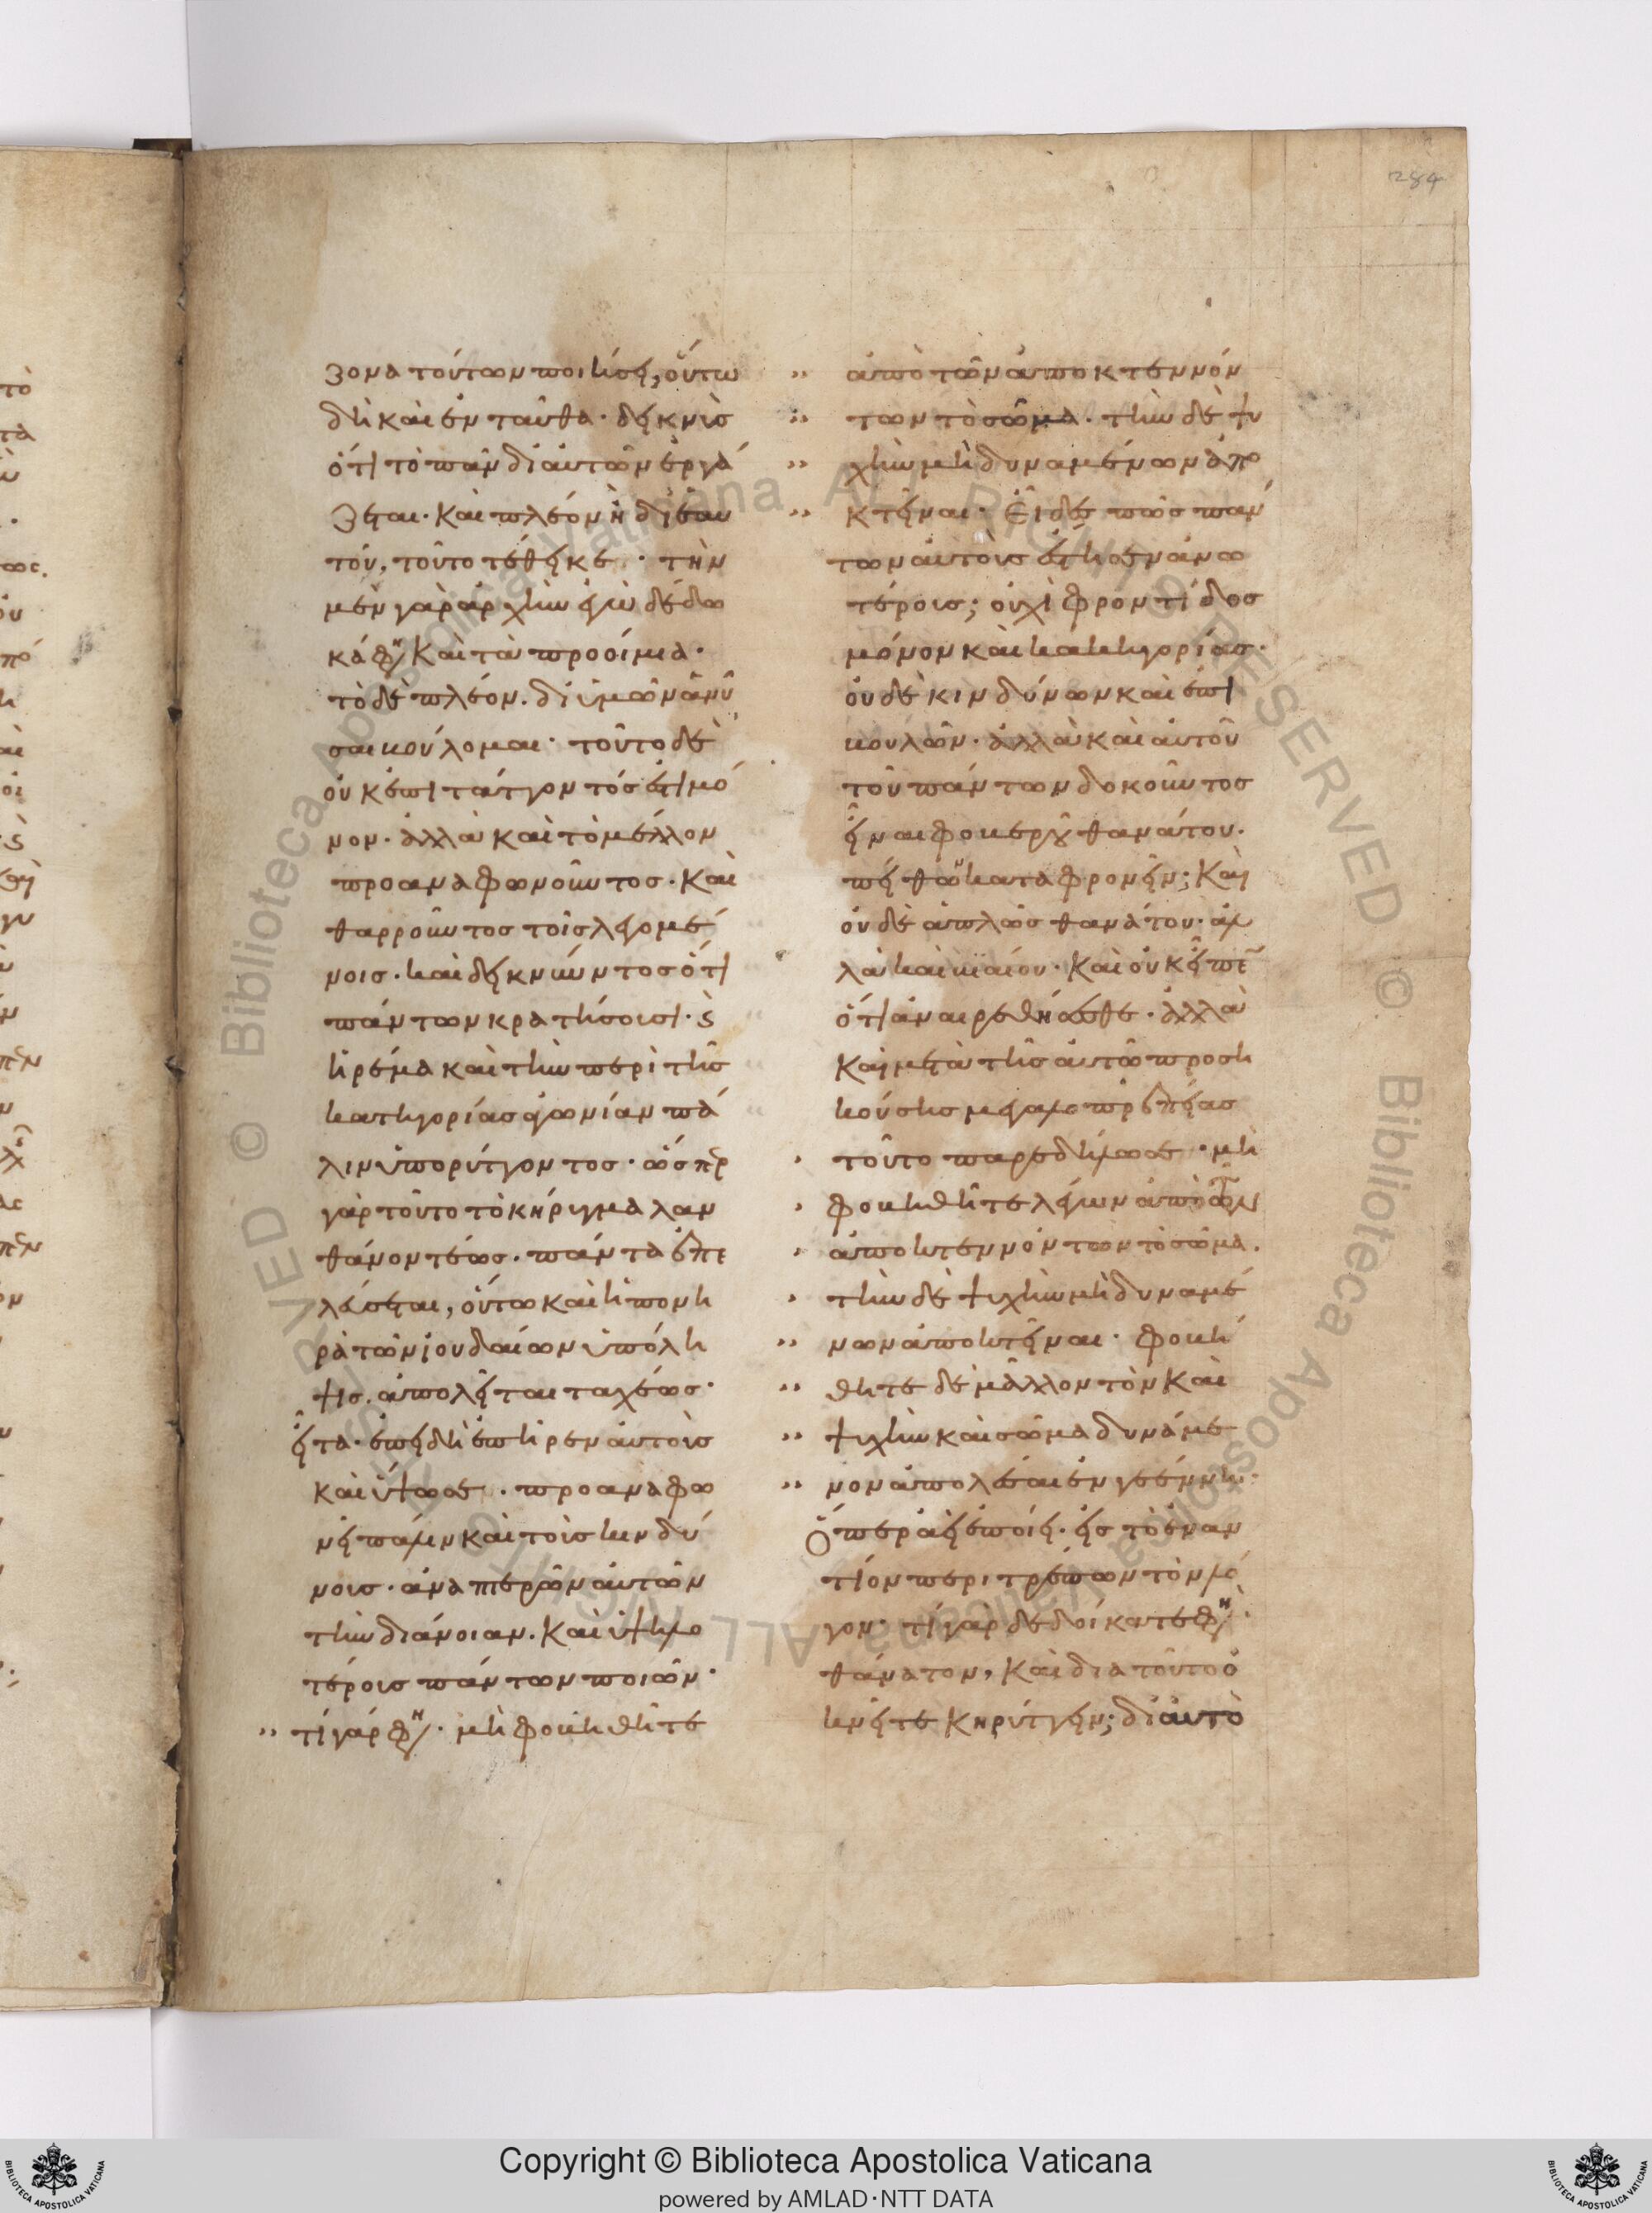 284
ζονα τούτων ποιήσει, οὕτω
δὴ καὶ ἐνταῦθα· δεικνὺς
ὅτι τὸ πᾶν δι' αὐτῶν ἐργά
ζεται· καὶ πλέον ἢ δι' ἑαυ
τόν, τοῦτο τέθεικε· τὴν
μὲν γὰρ ἀρχὴν ἐγὼ δέδω
κά φη καὶ τὰ προοίμια·
τὸ δὲ πλέον. δι' ὑμῶν ἀνῦ
σαι βούλομαι· τοῦτο δὲ
οὐκ ἐπιτάττοντός ἐστι μό
νον· ἀλλὰ καὶ τὸ μέλλον
προαναφωνοῦντος· καὶ
θαρροῦντος τοῖς λεγομέ
νοις· καὶ δεικνύντος ὅτι
πάντων κρατήσουσι· καὶ
ἠρέμα καὶ τὴν περὶ τῆς
κατηγορίας ἀγωνίαν πά
λιν ὑπορύττοντος· ὥσπερ
γὰρ τοῦτο τὸ κήρυγμα λαν
θάνον τέως· πάντα ἐπε
λεύσεται, οὕτω καὶ ἡ πονη
ρὰ τῶν ἰουδαίων ὑπόλη
ψις. ἀπολεῖται ταχέως·
εἶτα· ἐπειδὴ ἐπῆρεν αὐτοὺς
καὶ ὕψωσε· προαναφω
νεῖ πάλιν καὶ τοὺς κινδύ
νους· ἀναπτερῶν αὐτῶν
τὴν διάνοιαν. καὶ ὑψηλο
τέρους πάντων ποιῶν·
τί γάρ φη· μὴ φοβηθῆτε
ἀπὸ τῶν ἀποκτεννόν
των τὸ σῶμα. τὴν δὲ ψυ
χὴν μὴ δυναμένων ἀπο
κτεῖναι· Εἶδες πῶς πάν
των αὐτοὺς ἔστησεν ἀνω
τέρους; οὐχὶ φροντίδος
μόνον καὶ κακηγορίας·
οὐδὲ κινδύνων καὶ ἐπι
βουλῶν· ἀλλὰ καὶ αὐτοῦ
τοῦ πάντων δοκοῦντος
εἶναι φοβεροῦ θανάτου.
πείθων καταφρονεῖν; καὶ
οὐδὲ ἁπλῶς θανάτου· ἀλ
λὰ καὶ βιαίου· καὶ οὐκ εἶπεν
ὅτι ἀναιρεθήσεσθε· ἀλλὰ
καὶ μετὰ τῆς αὐτῶ προση
κούσης μεγαλοπρεπείας
τοῦτο παρεδήλωσε· μὴ
φοβηθῆτε λέγων ἀπὸ τῶν
ἀποκτεννόντων τὸ σῶμα.
τὴν δὲ ψυχὴν μὴ δυναμέ
νων ἀποκτεῖναι· φοβή
θητε δὲ μᾶλλον τὸν καὶ
ψυχὴν καὶ σῶμα δυνάμε
νον ἀπολέσαι ἐν γεέννη·
Ὅπερ ἀεὶ ἐποίει· εἰς τὸ ἐναν
τίον περιτρέπων τὸν λό
γον· τί γὰρ δεδοίκατε φη·
θάνατον, καὶ διὰ τοῦτο ὀ
κνεῖτε κηρύττειν; δι' αὐτὸ
Copyright © Biblioteca Apostolica Vaticana
powered by AMLAD·NTT DATA